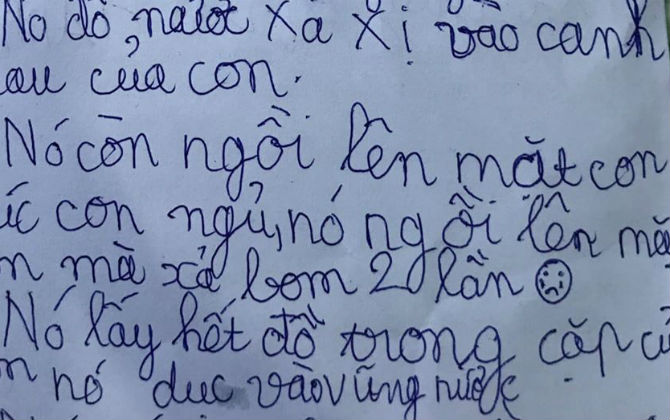 Nó đổ nước xá xị vào canh
au của con.
Nó còn ngồi lên mặt con
úc con ngủ, nó ngồi lên mặ
n mà xả bom 2 lần ☹
Nó lấy hết đồ trong cặp củ
n nó dục vào vũng nước